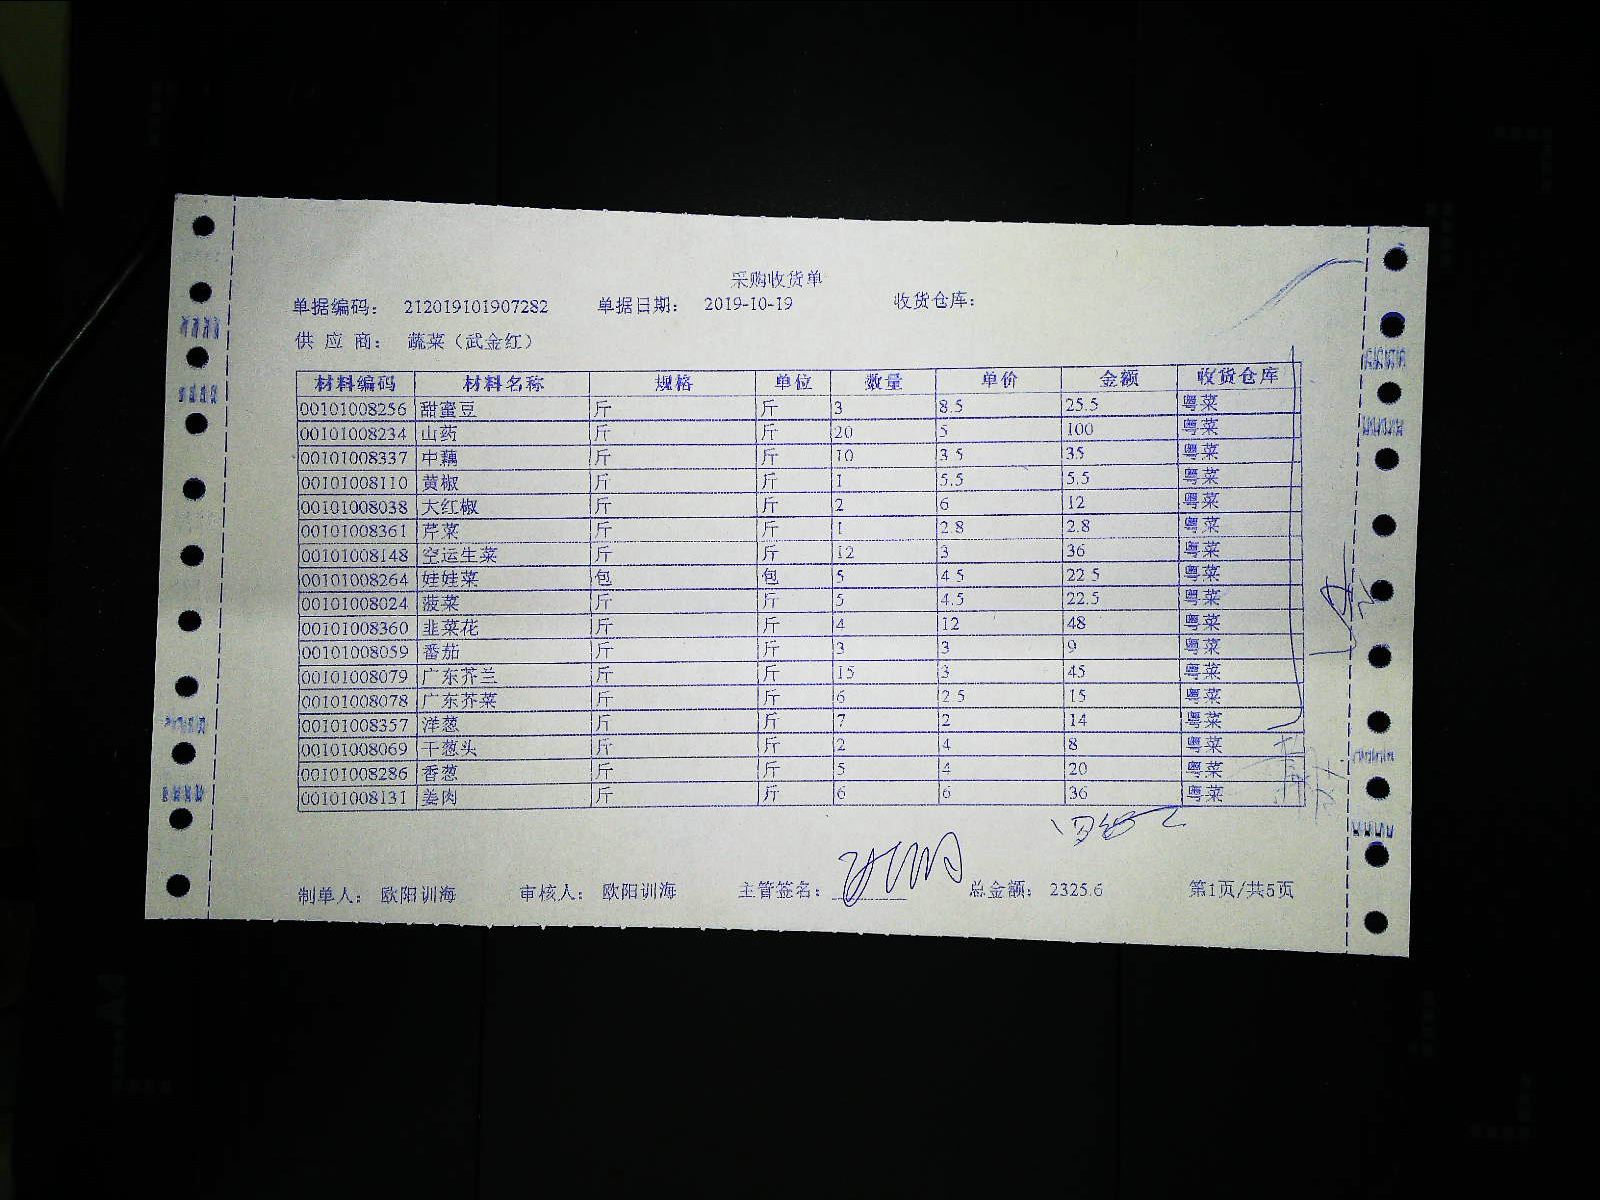 采购收货单
单据编码： 212019101907282 单据日期： 2019-10-19 收货仓库：
供 应 商： 蔬菜（武金红）
材料编码 材料名称 规格 单位 数量 单价 金额 收货仓库
00101008256 甜蜜豆 斤 斤 3 8.5 25.5 粤菜
00101008234 山药 斤 斤 20 5 100 粤菜
00101008337 中藕 斤 斤 10 3.5 35 粤菜
00101008110 黄椒 斤 斤 1 5.5 5.5 粤菜
00101008038 大红椒 斤 斤 2 6 12 粤菜
00101008361 芹菜 斤 斤 1 2.8 2.8 粤菜
00101008148 空运生菜 斤 斤 12 3 36 粤菜
00101008264 娃娃菜 包 包 5 4.5 22.5 粤菜
00101008024 菠菜 斤 斤 5 4.5 22.5 粤菜
00101008360 韭菜花 斤 斤 4 12 48 粤菜
00101008059 番茄 斤 斤 3 3 9 粤菜
00101008079 广东芥兰 斤 斤 15 3 45 粤菜
00101008078 广东芥菜 斤 斤 6 2.5 15 粤菜
00101008357 洋葱 斤 斤 7 2 14 粤菜
00101008069 干葱头 斤 斤 2 4 8 粤菜
00101008286 香葱 斤 斤 5 4 20 粤菜
00101008131 姜肉 斤 斤 6 6 36 粤菜
制单人： 欧阳训海 审核人： 欧阳训海 主管签名： 总金额： 2325.6 第1页/共5页